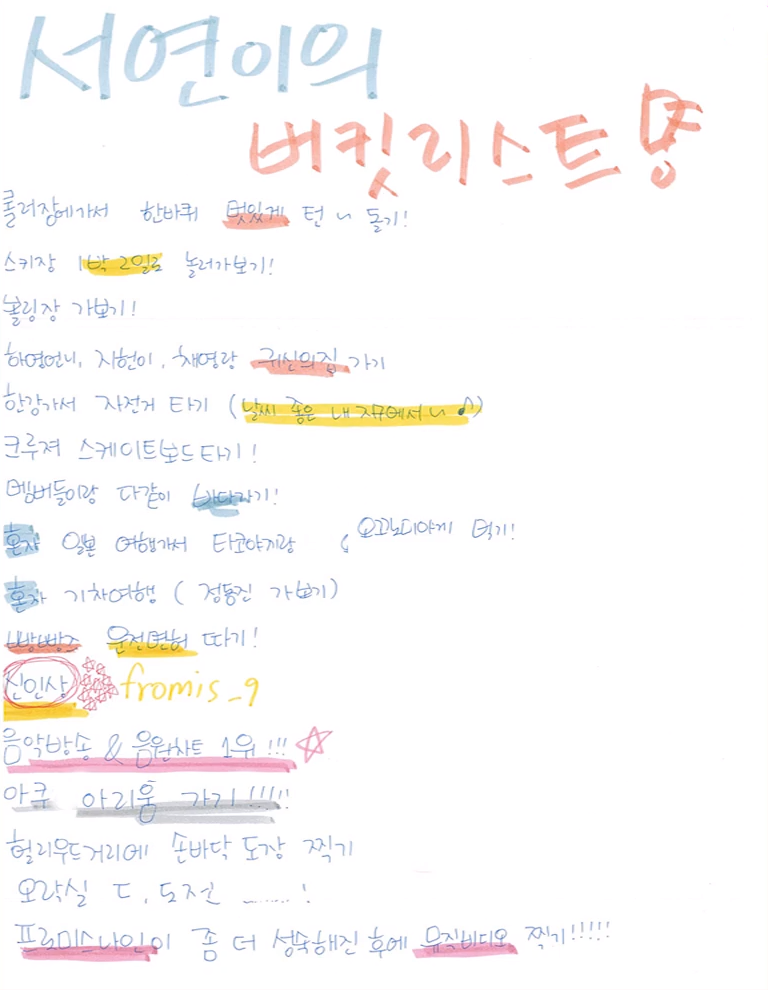 서연이의
버킷리스트
롤러장에가서 한바퀴 멋있게 턴~ 돌기!
스키장 1박 2일로 놀러가보기!
볼링장 가보기!
하영언니, 지헌이, 채영랑 귀신의집 가기
한강가서 자전거 타기 (날씨 좋은 내 ~ ♪)
크루져 스케이트보드타기!
멤버들이랑 다같이 바다가기!
혼자 일본 여행가서 타코야끼랑 오꼬노미야께 먹기!
혼자 기차여행 (정동진 가보기)
빵빵즈 운전면허 따기!
신인상 fromis_9
음악방송 & 음원차트 1위!!!
아쿠 아리움 가기!!!!!
헐리우드거리에 손바닥 도장 찍기
오락실 ㄷ, 도전 ........!
프로미스나인이 좀 더 성숙해진 후에 뮤직비디오 찍기!!!!!